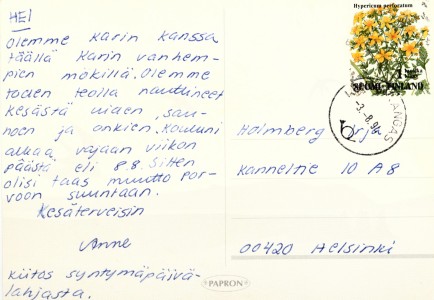 HEI
Olemme Karin kanssa
täällä Karin vanhem-
pien mökillä. Olemme
toden teolla nauttineet
kesästä uiden, sau-
noen ja onkien. Kouluni
alkaa vajaan viikon
päästä eli 8.8. Sitten
olisi taas muutto Por-
voon suuntaan.
Kesäterveisin
Anne
Kiitos syntymäpäivä-
lahjasta.
Hypericum perforatum
SUOMI FINLAND
KANGAS
-3.-8.94
Holmberg
Kanneltie 10 A 8
00420 Helsinki
PAPRON